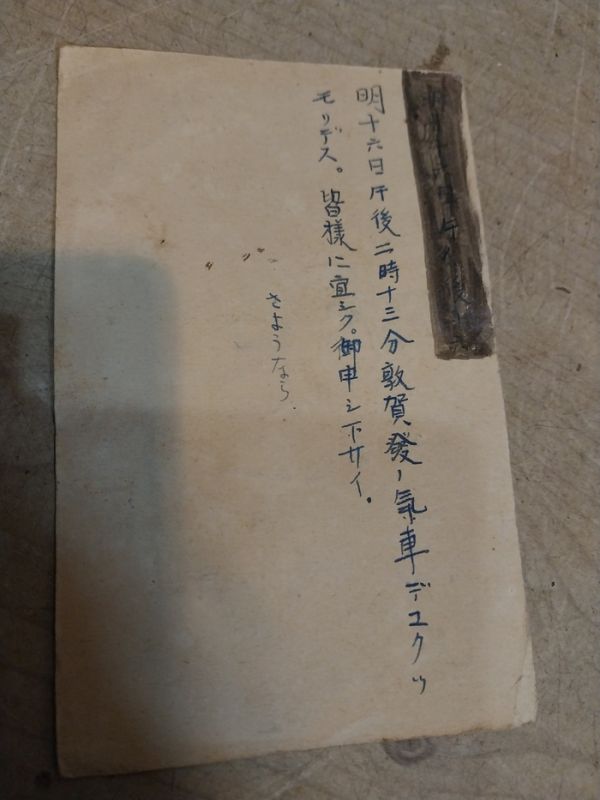 明十六日午後二時十三分敦賀發ノ氣車デユクツ
モリデス。皆様に宜シク。御申シ下サイ。
さようなら.